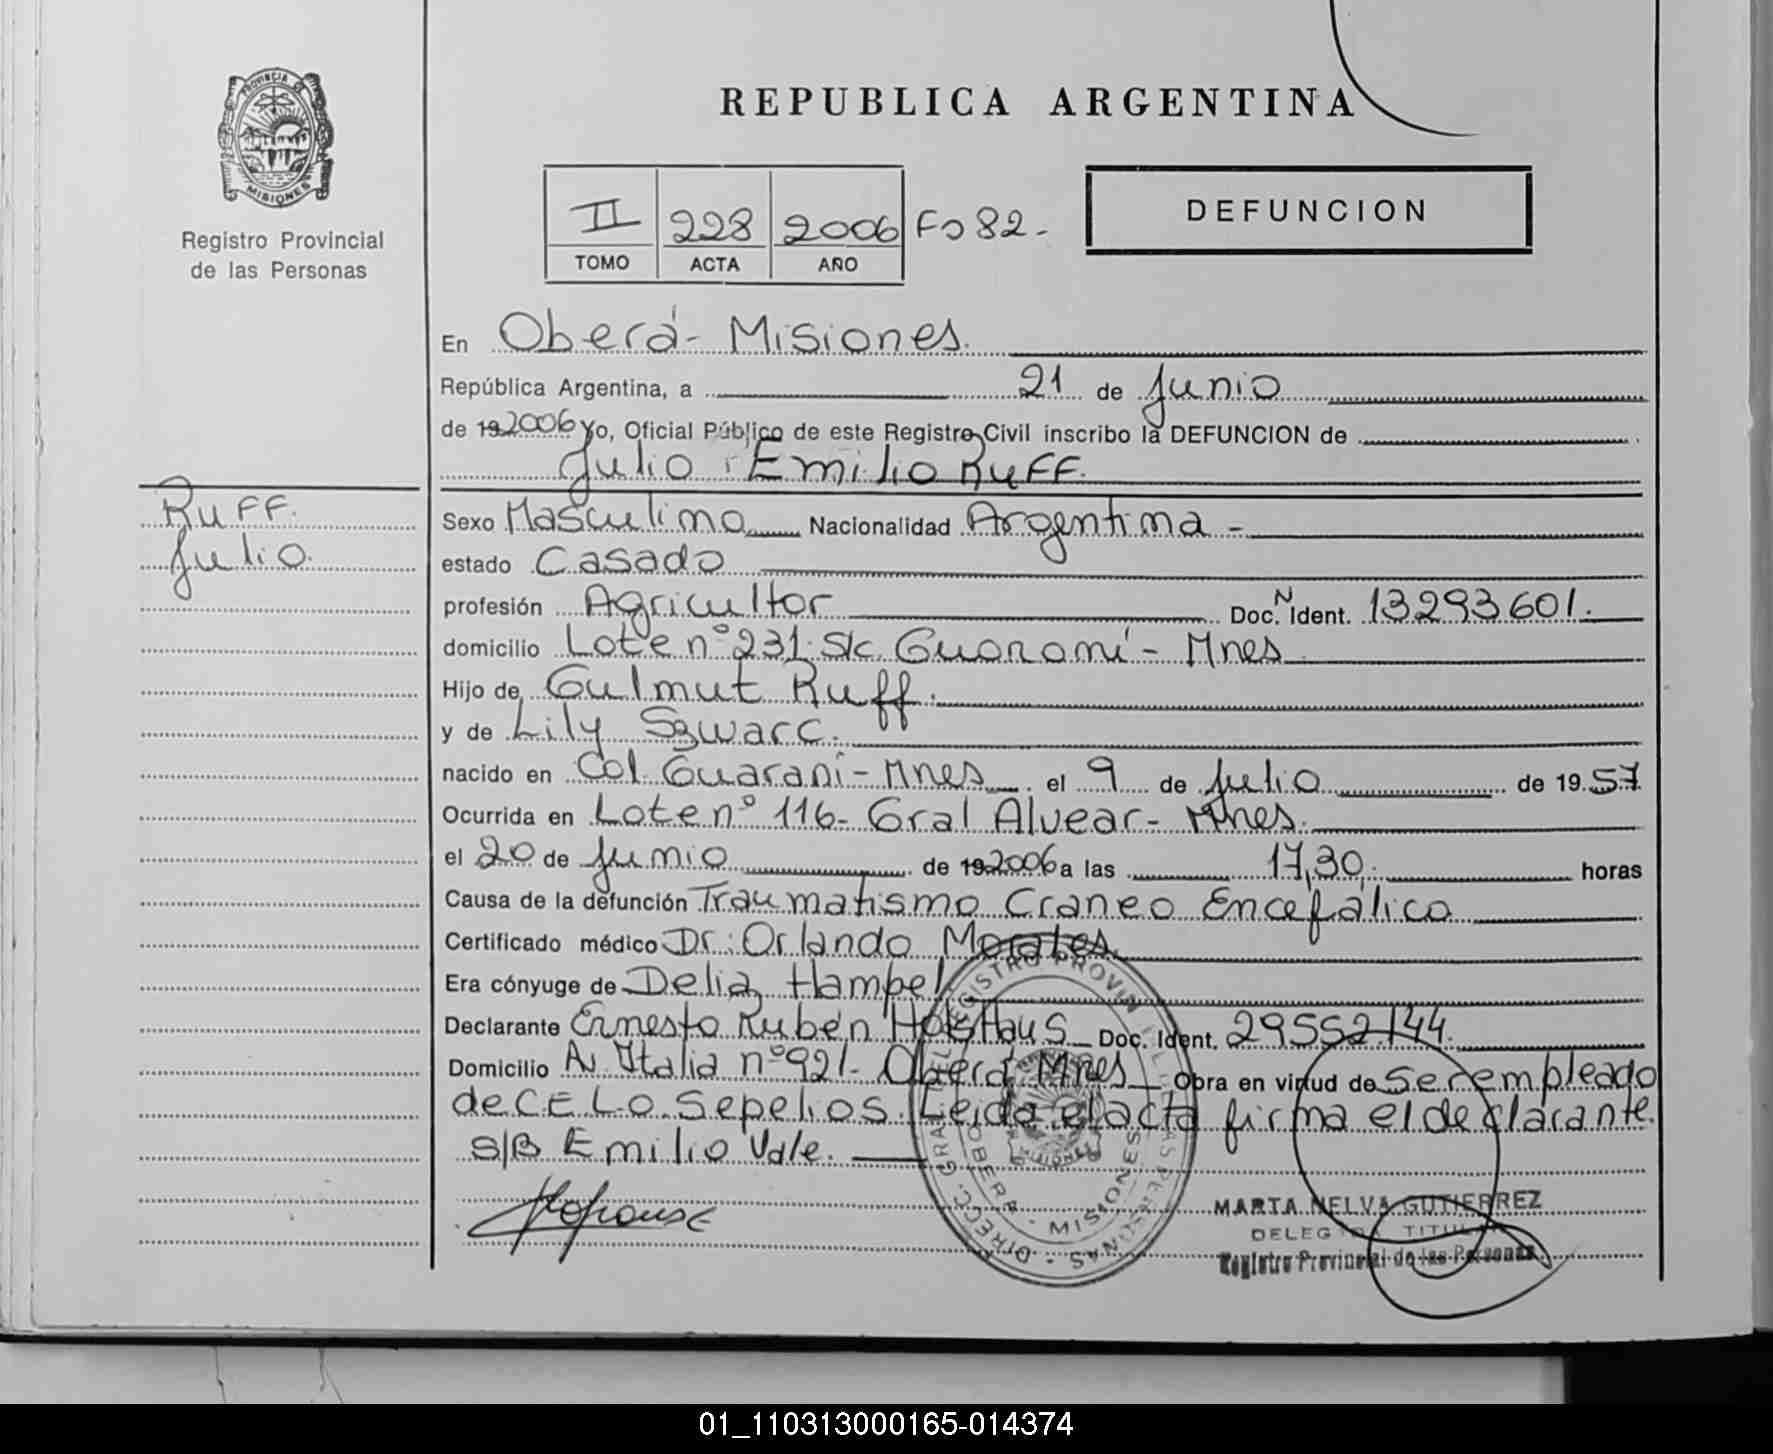 PROVINCIA DE
MISIONES
Registro Provincial
de las Personas
REPUBLICA ARGENTINA
II 228 2006 Fo 82.-
TOMO ACTA AÑO
DEFUNCION
En Oberá - Misiones.
República Argentina, a 21 de Junio
de 19 2006 Yo, Oficial Público de este Registro Civil inscribo la DEFUNCION de
Julio Emilio Ruff.
Ruff.
Julio.
Sexo Masculino Nacionalidad Argentina -
estado Casado
profesión Agricultor Doc. N Ident. 13293601.
domicilio Lote nº 231. S/c. Guaraní - Mnes
Hijo de Gulmut Ruff.
y de Lily Szwarc.
nacido en Col. Guaraní - Mnes. el 9 de Julio de 19 57
Ocurrida en Lote nº 116 - Gral Alvear - Mnes.
el 20 de Junio de 19 2006 a las 17,30. horas
Causa de la defunción Traumatismo Craneo Encefálico
Certificado médico Dr. Orlando Morales.
Era cónyuge de Delia Hampel
Declarante Ernesto Rubén Doc. Ident. 29552144.
Domicilio Av. Italia nº 921 - Oberá Mnes Obra en virtud de ser empleado
de CELO Sepelios. Leida el acta firma el declarante.
S/B Emilio Vale.
DIRECC. GRAL. DEL REGISTRO PROVINCIAL DE LAS PERSONAS -
OBERA - MISIONES
MARTA NELVA GUTIERREZ
DELEGADA TITULAR
Registro Provincial de las Personas
01_110313000165-014374